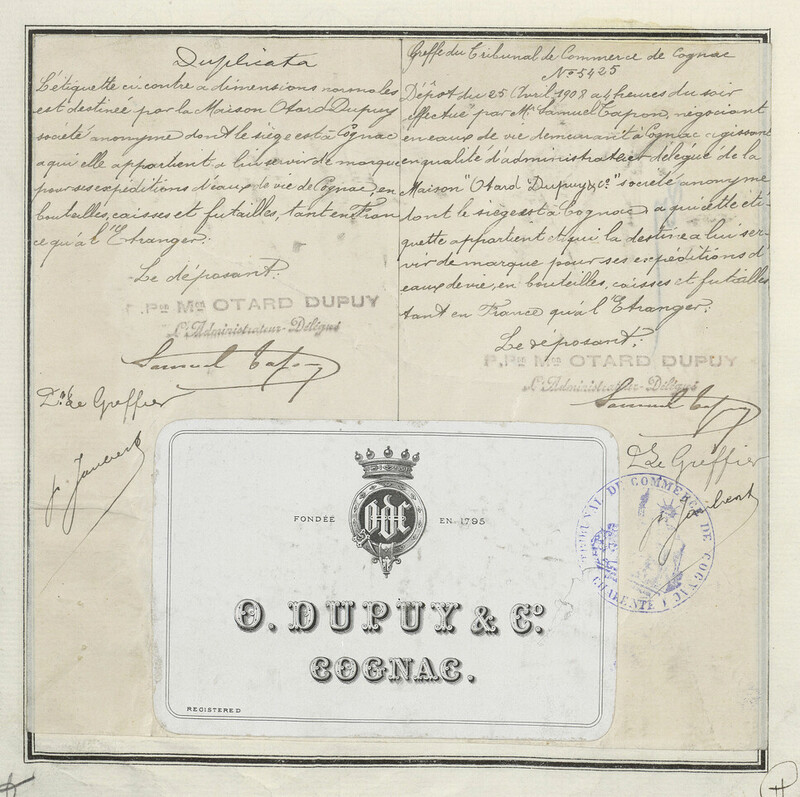 Duplicata
L'étiquette ci contre a dimensions normales
est destinée par la Maison Otard Dupuy
société anonyme dont le siège est à Cognac
a qui elle appartient a lui servir de marque
pour ses expéditions d'eaux de vie de Cognac, en
bouteilles, caisses et futailles, tant en Fran
ce qu'à l'Etranger.
Le déposant.
P. Pon Mon OTARD DUPUY
L'Administrateur-Délégué
Samuel Tapon
Le Greffier
Greffe du Tribunal de Commerce de Cognac
No 5425
Dépôt du 25 Avril 1908 a 4 heures du soir
effectué par Mr. Samuel Tapon, négociant
en eaux de vie demeurant à Cognac agissant
en qualité d'administrateur délégué de la
Maison "Otard Dupuy & Co" société anonyme
dont le siège est à Cognac, a qui cette éti-
quette appartient et qui la destine a lui ser-
vir de marque pour ses expéditions d'
eaux de vie, en bouteilles, caisses et futailles
tant en France qu'à l'Etranger.
Le déposant.
P. Pon Mon OTARD DUPUY
L'Administrateur-Délégué
Samuel Tapon
Le Greffier
TRIBUNAL DE COMMERCE DE COGNAC
CHARENTE
FONDÉE EN 1795
ODC
O. DUPUY & Co.
COGNAC.
REGISTERED